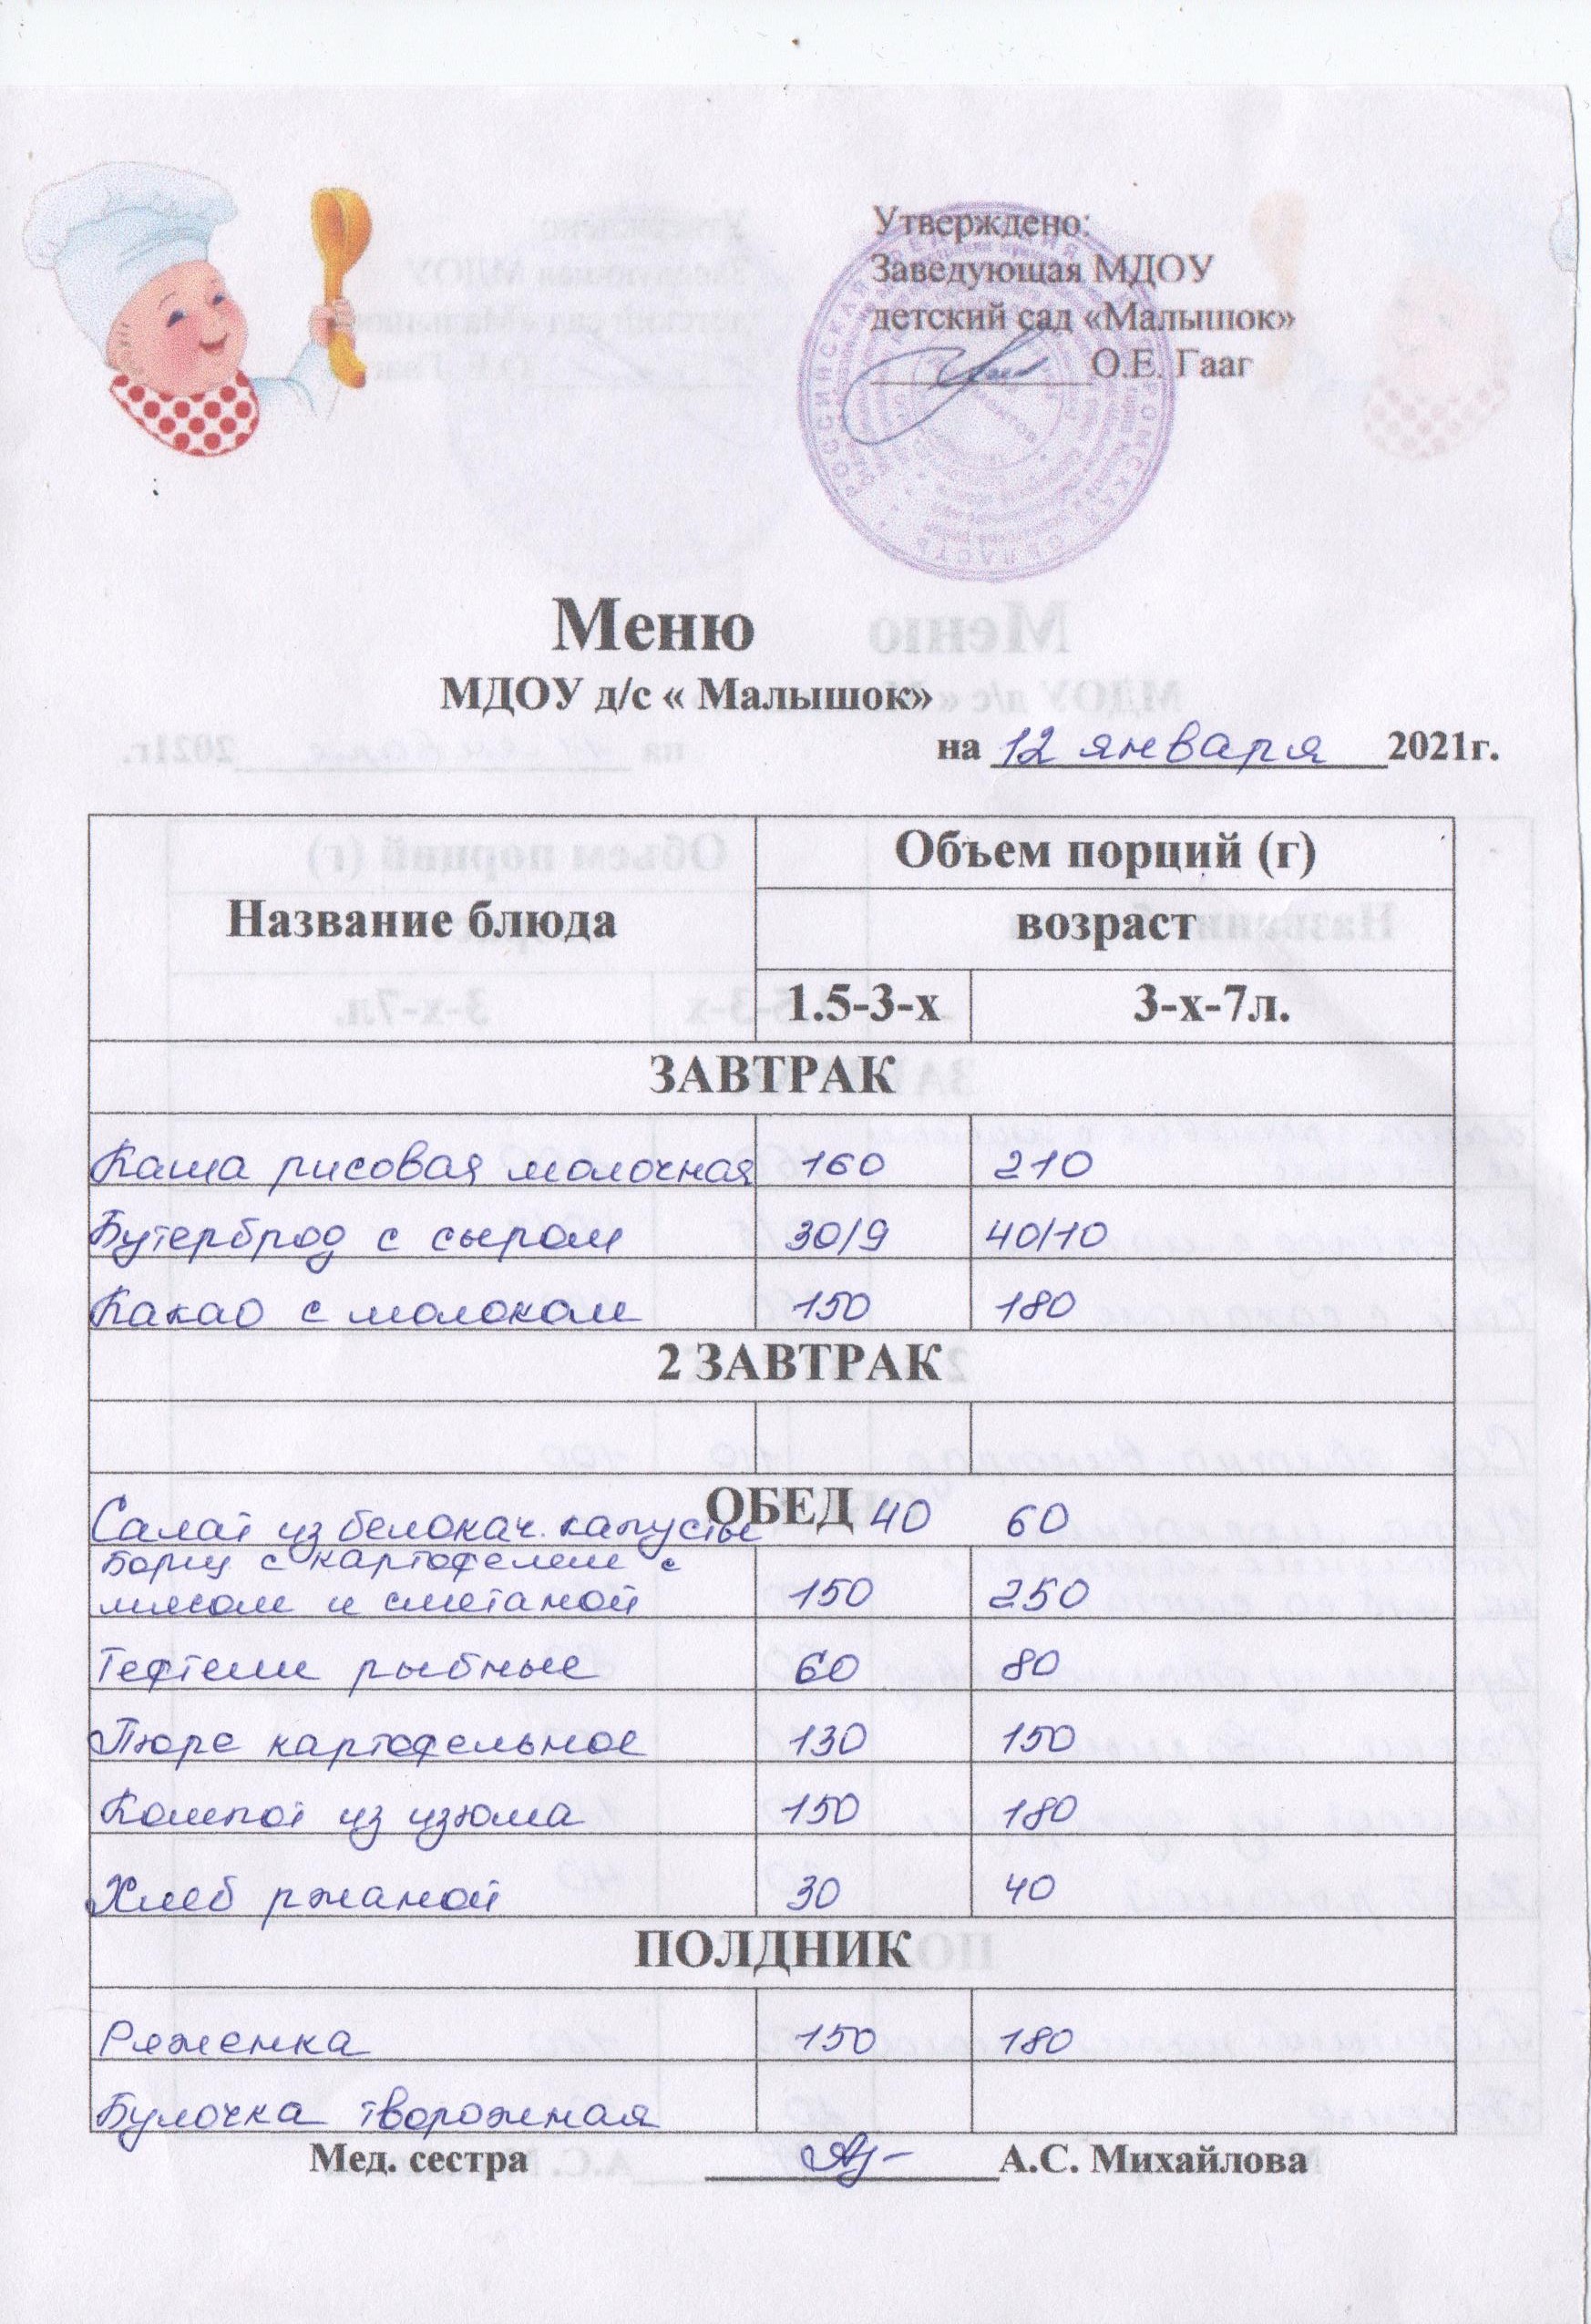 Утверждено:
Заведующая МДОУ
детский сад «Малышок»
О.Е. Гааг
Меню
МДОУ д/с « Малышок»
на 12 января 2021г.
Название блюда
Объем порций (г)
возраст
1.5-3-х 3-х-7л.
ЗАВТРАК
Каша рисовая молочная 160 210
Бутерброд с сыром 30/9 40/10
Какао с молоком 150 180
2 ЗАВТРАК
ОБЕД
Салат из белокач. капусты 40 60
Борщ с картофелем с
мясом и сметаной 150 250
Тефтели рыбные 60 80
Пюре картофельное 130 150
Компот из изюма 150 180
Хлеб ржаной 30 40
ПОЛДНИК
Ряженка 150 180
Булочка творожная
Мед. сестра А.С. Михайлова